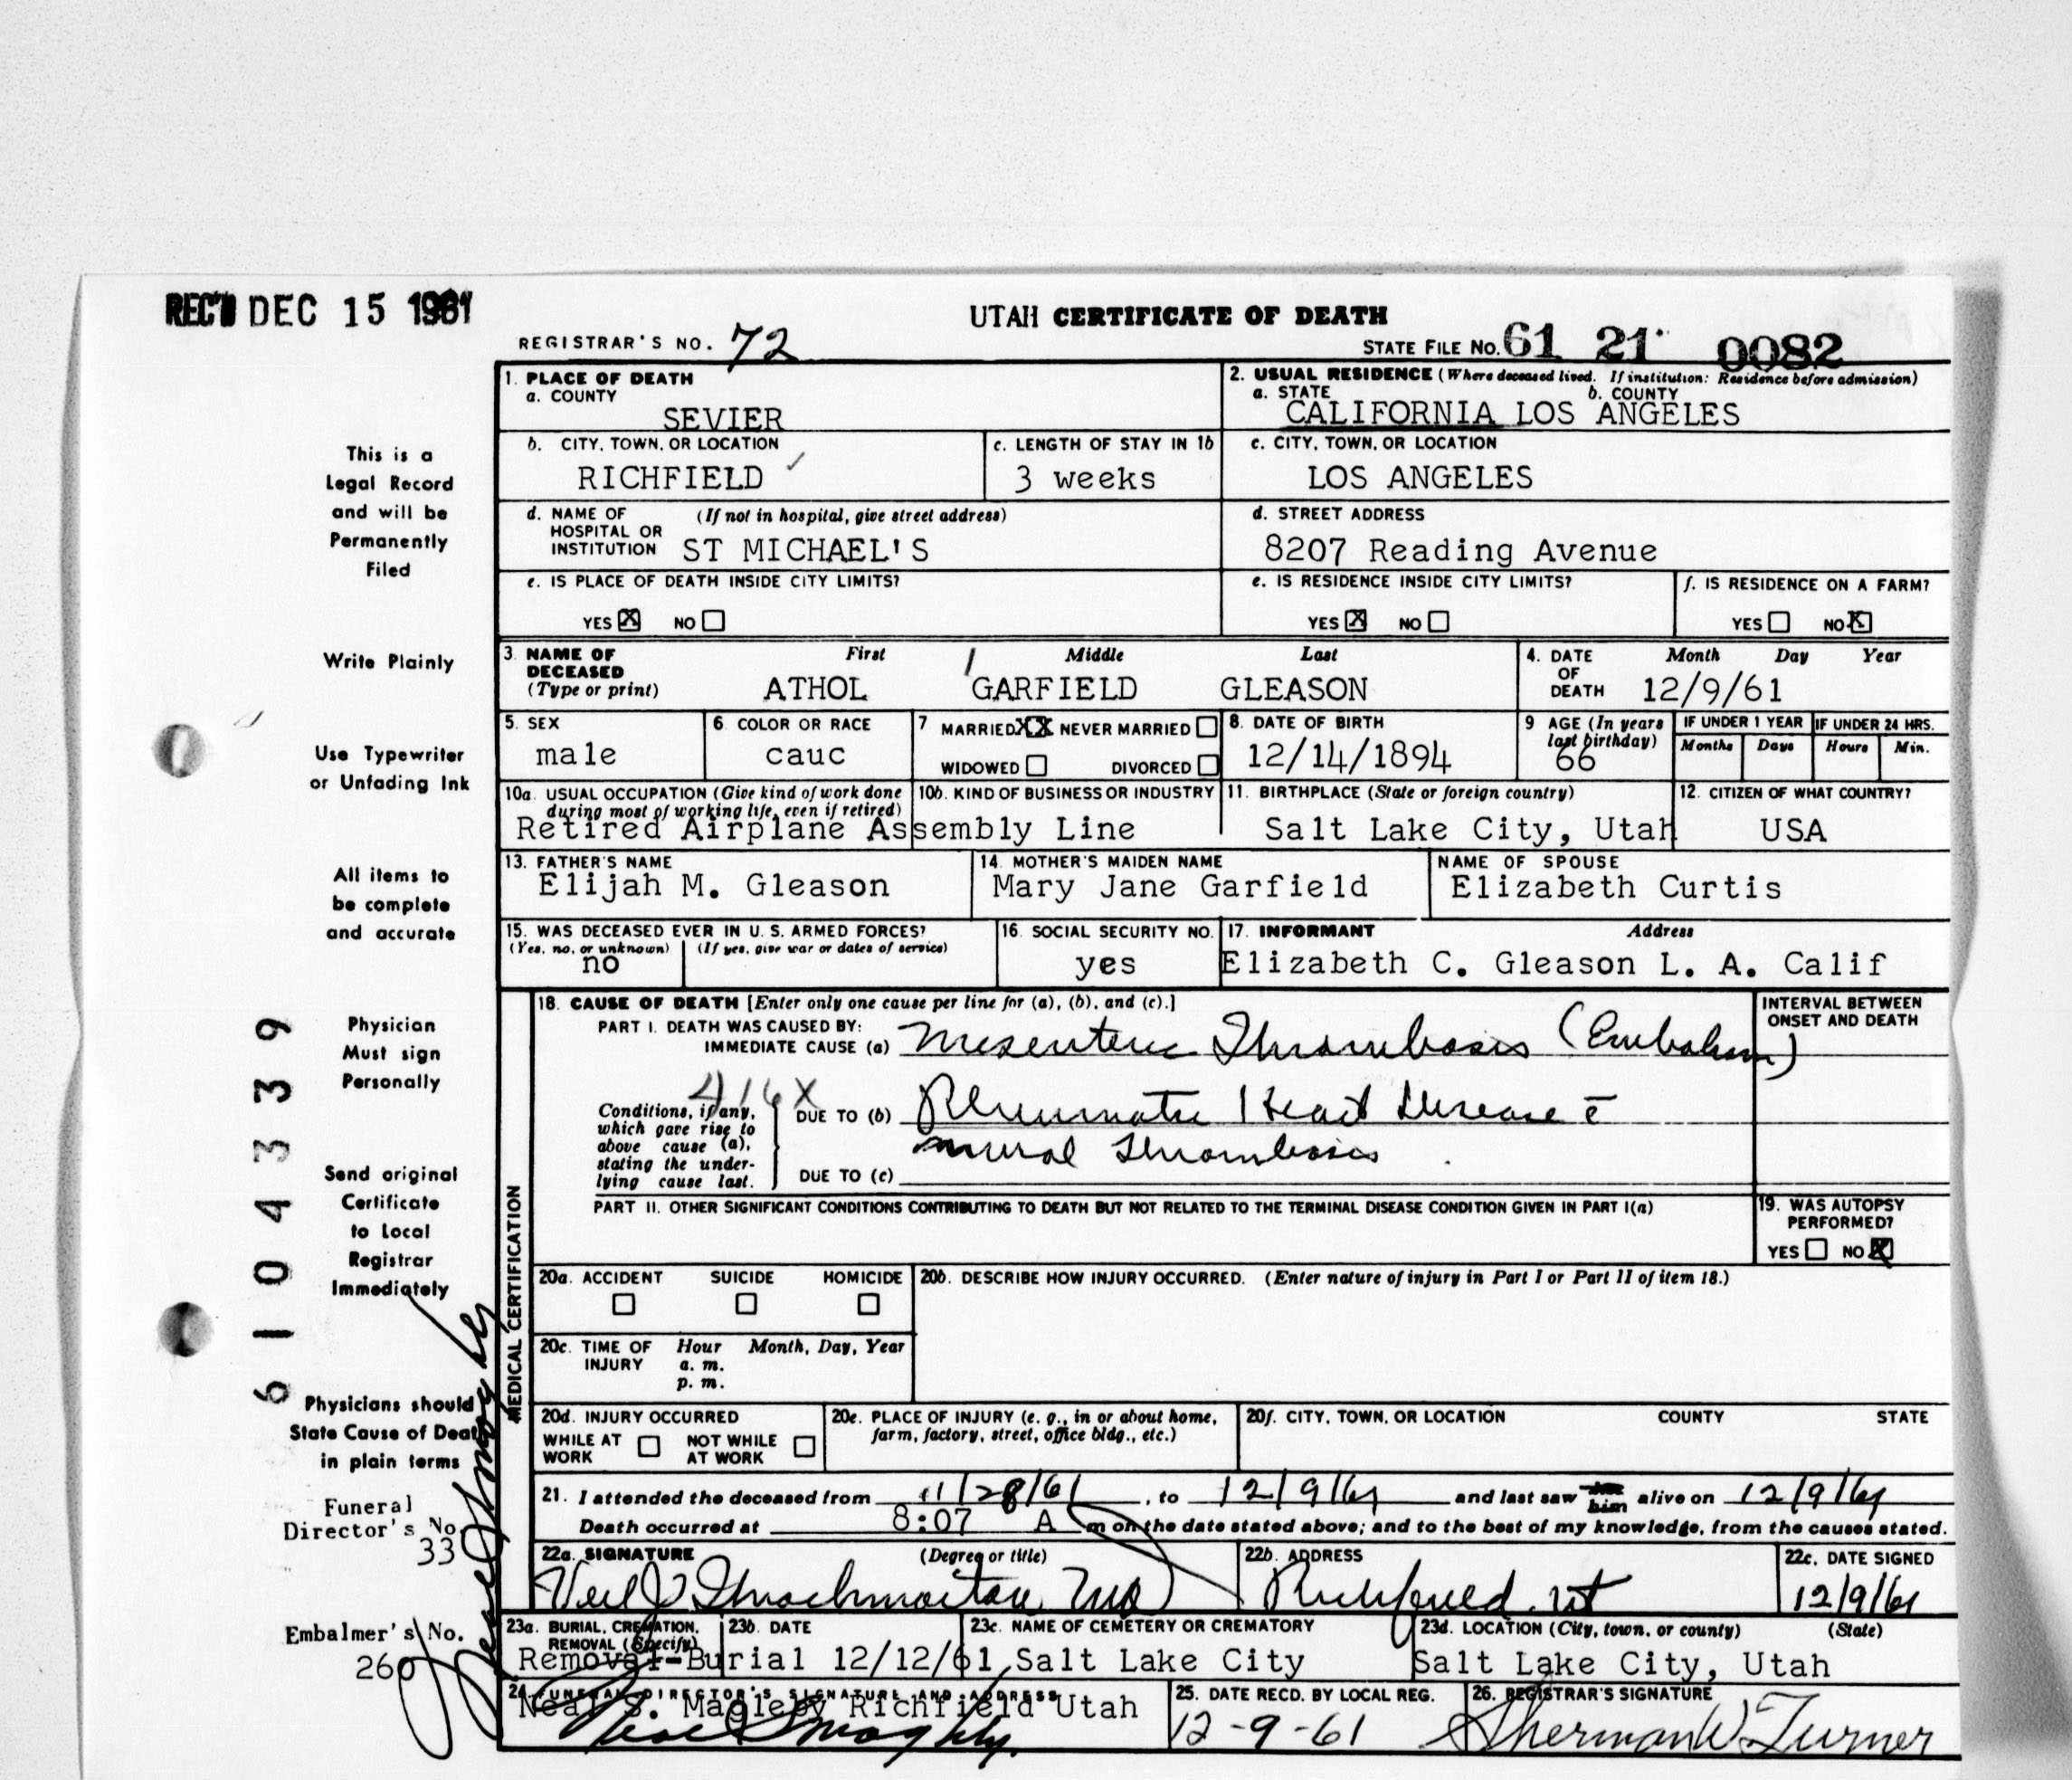 REC'D DEC 15 1961
UTAH CERTIFICATE OF DEATH
REGISTRAR'S NO. 72
STATE FILE NO. 61 21 0082
1. PLACE OF DEATH
a. COUNTY
SEVIER
2. USUAL RESIDENCE (Where deceased lived. If institution: Residence before admission)
a. STATE b. COUNTY
CALIFORNIA LOS ANGELES
b. CITY, TOWN, OR LOCATION
RICHFIELD ✓
c. LENGTH OF STAY IN 1b
3 weeks
c. CITY, TOWN, OR LOCATION
LOS ANGELES
d. NAME OF HOSPITAL OR INSTITUTION (If not in hospital, give street address)
ST MICHAEL'S
d. STREET ADDRESS
8207 Reading Avenue
e. IS PLACE OF DEATH INSIDE CITY LIMITS?
YES X NO
e. IS RESIDENCE INSIDE CITY LIMITS?
YES X NO
f. IS RESIDENCE ON A FARM?
YES NO X
3. NAME OF DECEASED (Type or print)
First Middle Last
ATHOL GARFIELD GLEASON
4. DATE OF DEATH Month Day Year
12/9/61
5. SEX
male
6. COLOR OR RACE
cauc
7 MARRIED XX NEVER MARRIED
WIDOWED DIVORCED
8. DATE OF BIRTH
12/14/1894
9 AGE (In years last birthday)
66
IF UNDER 1 YEAR
Months Days
IF UNDER 24 HRS.
Hours Min.
10a. USUAL OCCUPATION (Give kind of work done during most of working life, even if retired)
10b. KIND OF BUSINESS OR INDUSTRY
Retired Airplane Assembly Line
11. BIRTHPLACE (State or foreign country)
Salt Lake City, Utah
12. CITIZEN OF WHAT COUNTRY?
USA
13. FATHER'S NAME
Elijah M. Gleason
14. MOTHER'S MAIDEN NAME
Mary Jane Garfield
NAME OF SPOUSE
Elizabeth Curtis
15. WAS DECEASED EVER IN U. S. ARMED FORCES?
(Yes, no, or unknown) (If yes, give war or dates of service)
no
16. SOCIAL SECURITY NO.
yes
17. INFORMANT Address
Elizabeth C. Gleason L. A. Calif
MEDICAL CERTIFICATION
18. CAUSE OF DEATH [Enter only one cause per line for (a), (b), and (c).]
INTERVAL BETWEEN ONSET AND DEATH
PART I. DEATH WAS CAUSED BY:
IMMEDIATE CAUSE (a) Mesenteric Thrombosis (Embolism)
416X
Conditions, if any, which gave rise to above cause (a), stating the underlying cause last.
DUE TO (b) Rheumatic Heart Disease c̄
mural Thrombosis
DUE TO (c)
PART II. OTHER SIGNIFICANT CONDITIONS CONTRIBUTING TO DEATH BUT NOT RELATED TO THE TERMINAL DISEASE CONDITION GIVEN IN PART I(a)
19. WAS AUTOPSY PERFORMED?
YES NO X
20a. ACCIDENT SUICIDE HOMICIDE
20b. DESCRIBE HOW INJURY OCCURRED. (Enter nature of injury in Part I or Part II of item 18.)
20c. TIME OF INJURY Hour Month, Day, Year
a. m.
p. m.
20d. INJURY OCCURRED
WHILE AT WORK NOT WHILE AT WORK
20e. PLACE OF INJURY (e. g., in or about home, farm, factory, street, office bldg., etc.)
20f. CITY, TOWN, OR LOCATION COUNTY STATE
21. I attended the deceased from 11/28/61, to 12/9/61 and last saw him alive on 12/9/61
Death occurred at 8:07 A m on the date stated above; and to the best of my knowledge, from the causes stated.
22a. SIGNATURE (Degree or title)
MD
22b. ADDRESS
Richfield, Ut
22c. DATE SIGNED
12/9/61
23a. BURIAL, CREMATION, REMOVAL (Specify)
Removal-Burial
23b. DATE
12/12/61
23c. NAME OF CEMETERY OR CREMATORY
Salt Lake City
23d. LOCATION (City, town, or county) (State)
Salt Lake City, Utah
24. FUNERAL DIRECTOR'S SIGNATURE AND ADDRESS
Neal S. Magleby Richfield Utah
Neal S Magleby
25. DATE RECD. BY LOCAL REG.
12-9-61
26. REGISTRAR'S SIGNATURE
Sherman W. Turner
This is a
Legal Record
and will be
Permanently
Filed
Write Plainly
Use Typewriter
or Unfading Ink
All items to
be complete
and accurate
Physician
Must sign
Personally
Send original
Certificate
to Local
Registrar
Immediately
Physicians should
State Cause of Death
in plain terms
Funeral
Director's No
33
Embalmer's No.
260
Neal S Magleby
6104339